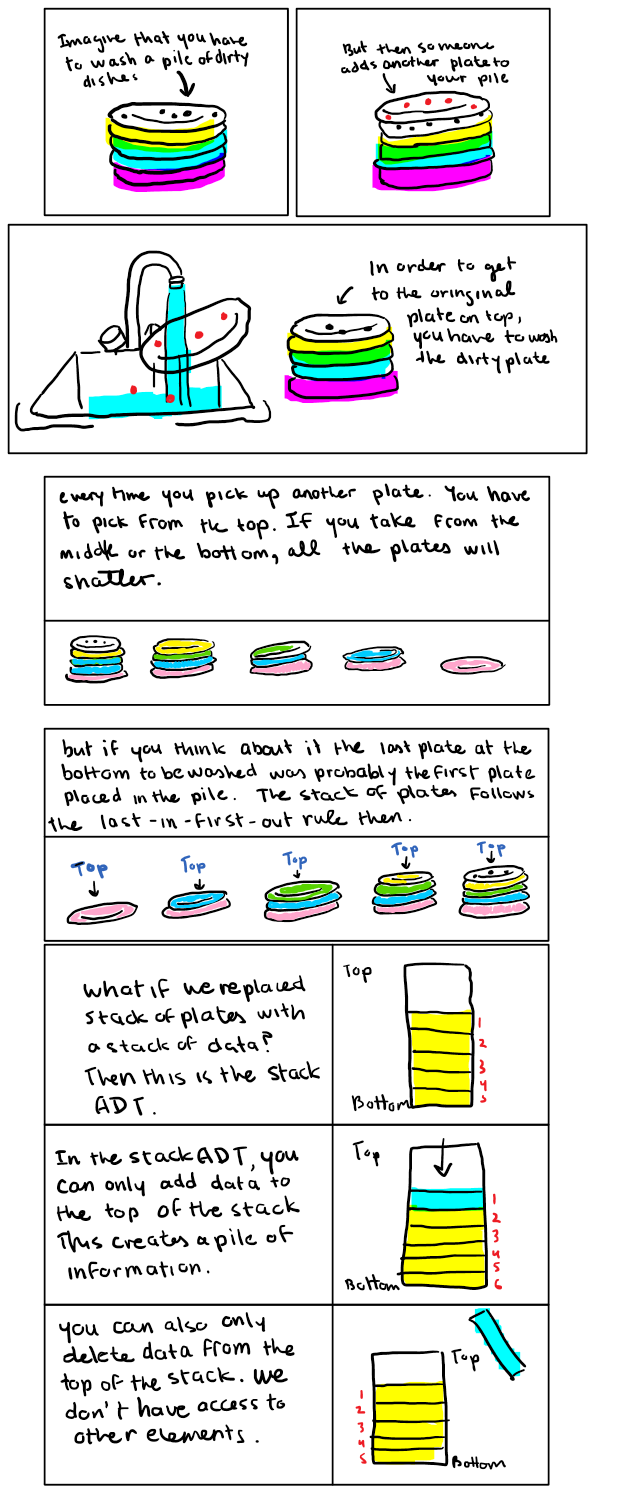 Imagine that you have
to wash a pile of dirty
dishes
But then someone
adds another plate to
your pile
In order to get
to the oringinal
plate on top,
you have to wash
the dirty plate
every time you pick up another plate. You have
to pick from the top. If you take from the
middle or the bottom, all the plates will
shatter.
but if you think about it the last plate at the
bottom to be washed was probably the first plate
placed in the pile. The stack of plates follows
the last-in-first-out rule then.
Top
Top
Top
Top
Top
what if we replaced
stack of plates with
a stack of data?
Then this is the stack
ADT.
Top
1
2
3
4
5
Bottom
In the stack ADT, you
can only add data to
the top of the stack
This creates a pile of
information.
Top
1
2
3
4
5
6
Bottom
you can also only
delete data from the
top of the stack. we
don't have access to
other elements.
Top
1
2
3
4
5
Bottom